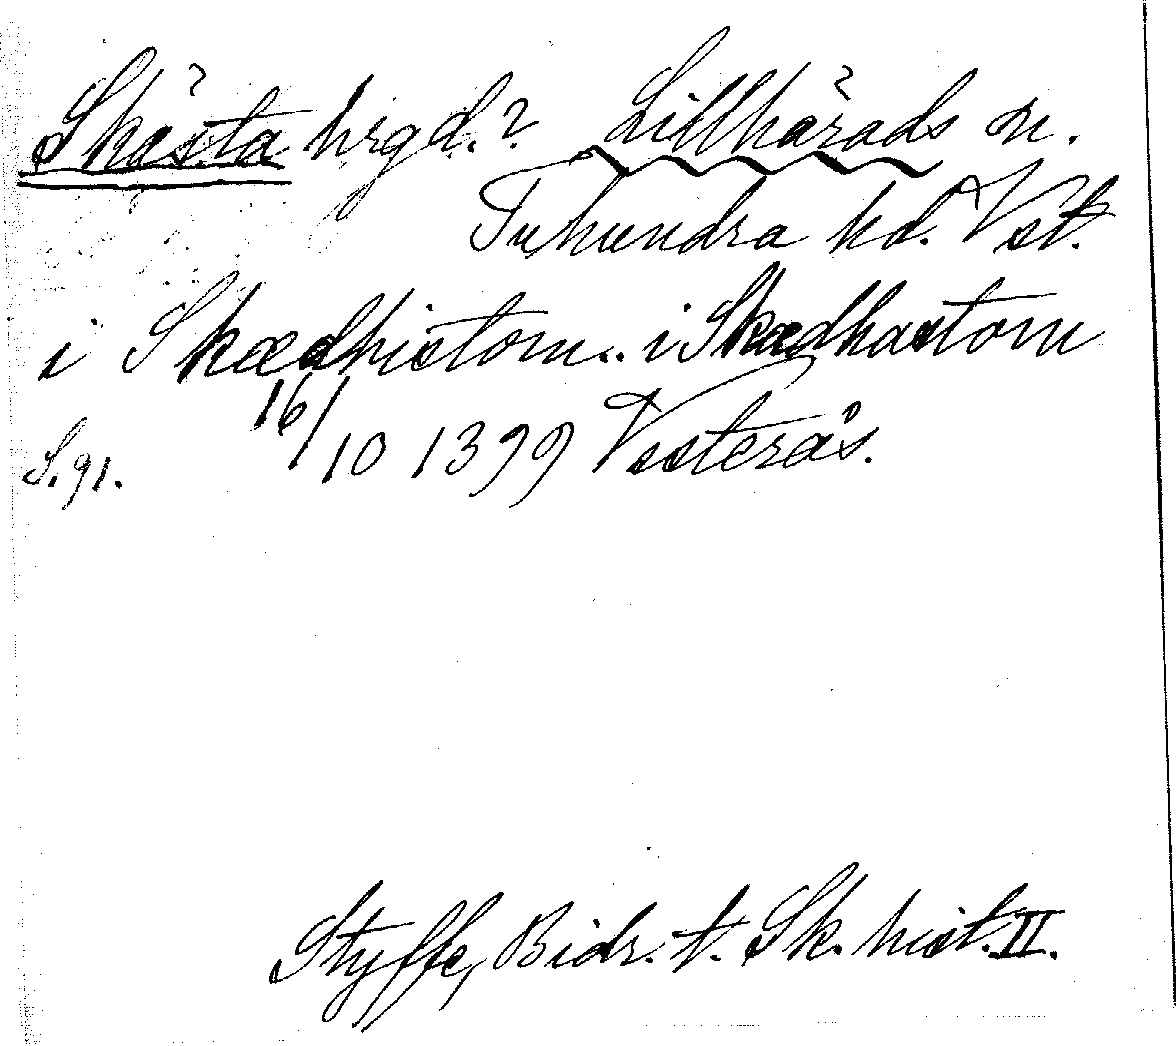 Skästa hrgd.? Lillhärads sn.
Tuhundra hd. Vst.
i Skædhistom.. i Skædhastom
16/10 1399 Vesterås.
S. 91.
Styffe, Bidr. t. Sk. hist. II.